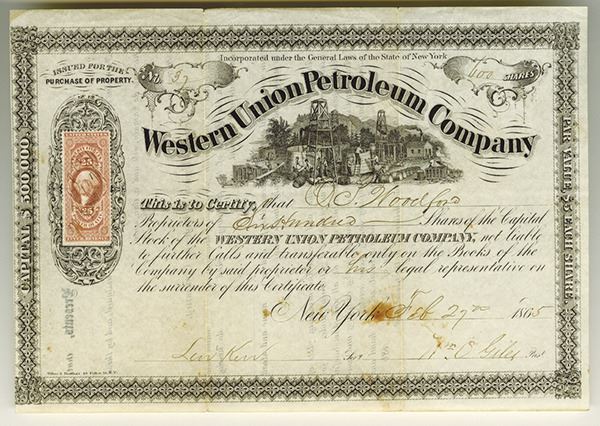 Incorporated under the General Laws of the State of New York
ISSUED FOR THE
PURCHASE OF PROPERTY.
No. 37
600 SHARES
Western Union Petroleum Company
CAPITAL $ 500,000.
PAR VALUE, $5 EACH SHARE.
25
25
This is to Certify, that C. S. Woodford
Proprietors of Six Hundred Shares of the Capital
Stock of the WESTERN UNION PETROLEUM COMPANY, not liable
to further Calls and transferable only on the Books of the
Company by said proprietor or his legal representative on
the surrender of this Certificate.
New York Feb 27th 1865
Secy
Wm E Giles Prest